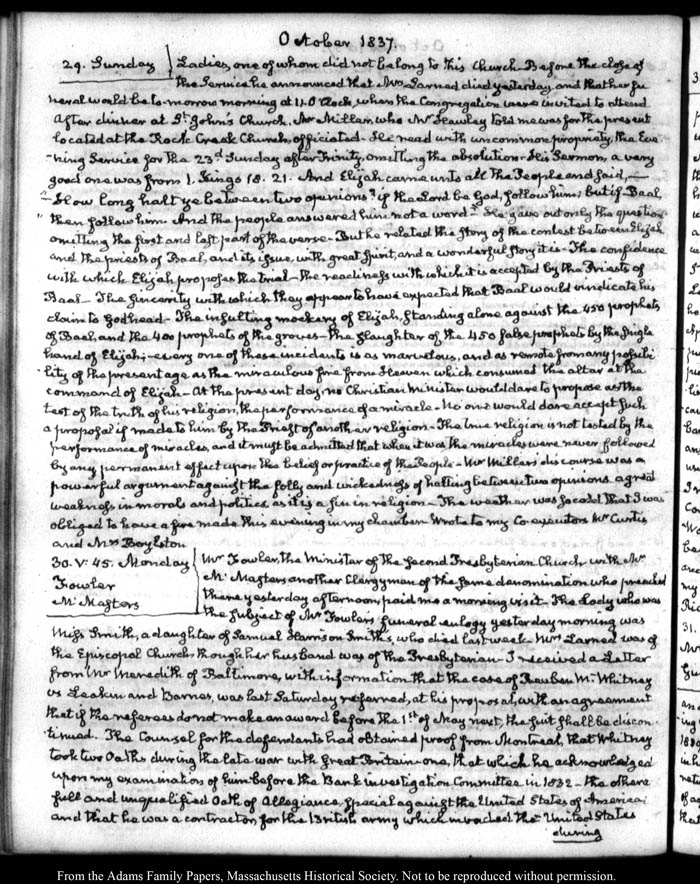 October 1837.
29. Sunday Ladies, one of whom did not belong to this Church. Before the close of
the Service he announced that Mrs Larned died yesterday, and that her fu
neral would be to-morrow morning at 11. O'Clock, when the Congregation were invited to attend
After dinner at St. John's Church, Mr Miller, who Mr Hawley told me was for the present
located at the Rock Creek Church, officiated. He read with uncommon propriety, the Eve
ning Service for the 23d Sunday after Trinity, omitting the absolution. His Sermon, a very
good one was from 1. Kings 18. 21. And Elijah came unto all the People and said,—
"How long halt ye between two opinions? if the Lord be God, follow him; but if Baal,
"then follow him. And the people answered him not a word." He gave out only the question
omitting the first and last part of the verse. But he related the story of the contest between Elijah
and the priests of Baal, and its issue, with great spirit, and a wonderful story it is. The confidence
with which Elijah proposes the trial—the readiness with which it is accepted by the Priests of
Baal— The sincerity with which they appear to have expected that Baal would vindicate his
claim to Godhead— The insulting mockery of Elijah, standing alone against the 450 prophets
of Baal, and the 400 prophets of the groves—the slaughter of the 450 false prophets by the single
hand of Elijah;—every one of these incidents is as marvelous, and as remote from any possibi
lity of the present age as the miraculous fire from Heaven which consumed the altar at the
command of Elijah— At the present day, no Christian Minister would dare to propose as the
test of the truth of his religion, the performance of a miracle— No one would dare accept such
a proposal if made to him by the Priest of another religion— The true religion is not tested by the
performance of miracles, and it must be admitted that when it was the miracles were never followed
by any permanent effect upon the belief or practice of the People— Mr Miller's discourse was a
powerful argument against the folly and wickedness of halting between two opinions a great
weakness in morals and politics as it is a sin in religion— The weather was so cold that I was
obliged to have a fire made this evening in my chamber. Wrote to my Co-executors Mr Curtis
and Mrs Boylston
30. V: 45. Monday Mr Fowler, the Minister of the Second Presbyterian Church with Mr
Fowler Mc Masters another Clergyman of the same denomination who preached
Mc Masters there yesterday afternoon, paid me a morning visit. The Lady who was
the subject of Mr Fowler's funeral eulogy yesterday morning was
Miss Smith, a daughter of Samuel Harrison Smith's, who died last week. Mrs Larned was of
the Episcopal Church though her husband was of the Presbyterian— I received a Letter
from Mr Meredith of Baltimore, with information that the case of Reuben M. Whitney
vs Leakin and Barnes, was last Saturday referred, at his proposal, with an agreement
that if the referees do not make an award before the 1st of May next, the suit shall be discon
tinued. The Counsel for the defendants had obtained proof from Montreal, that Whitney
took two Oaths during the late war with Great Britain—one, that which he acknowledged
upon my examination of him before the Bank investigation Committee in 1832— the other a
full and unqualified Oath of Allegiance, special against the United States of America
and that he was a contractor for the British army which invaded the United States
during
From the Adams Family Papers, Massachusetts Historical Society. Not to be reproduced without permission.